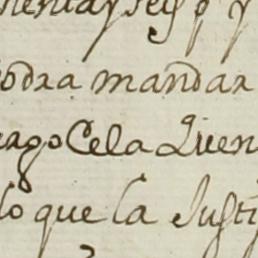 nenta y seis p y
odra mandar
argo Cela Quen
lo que la Justi